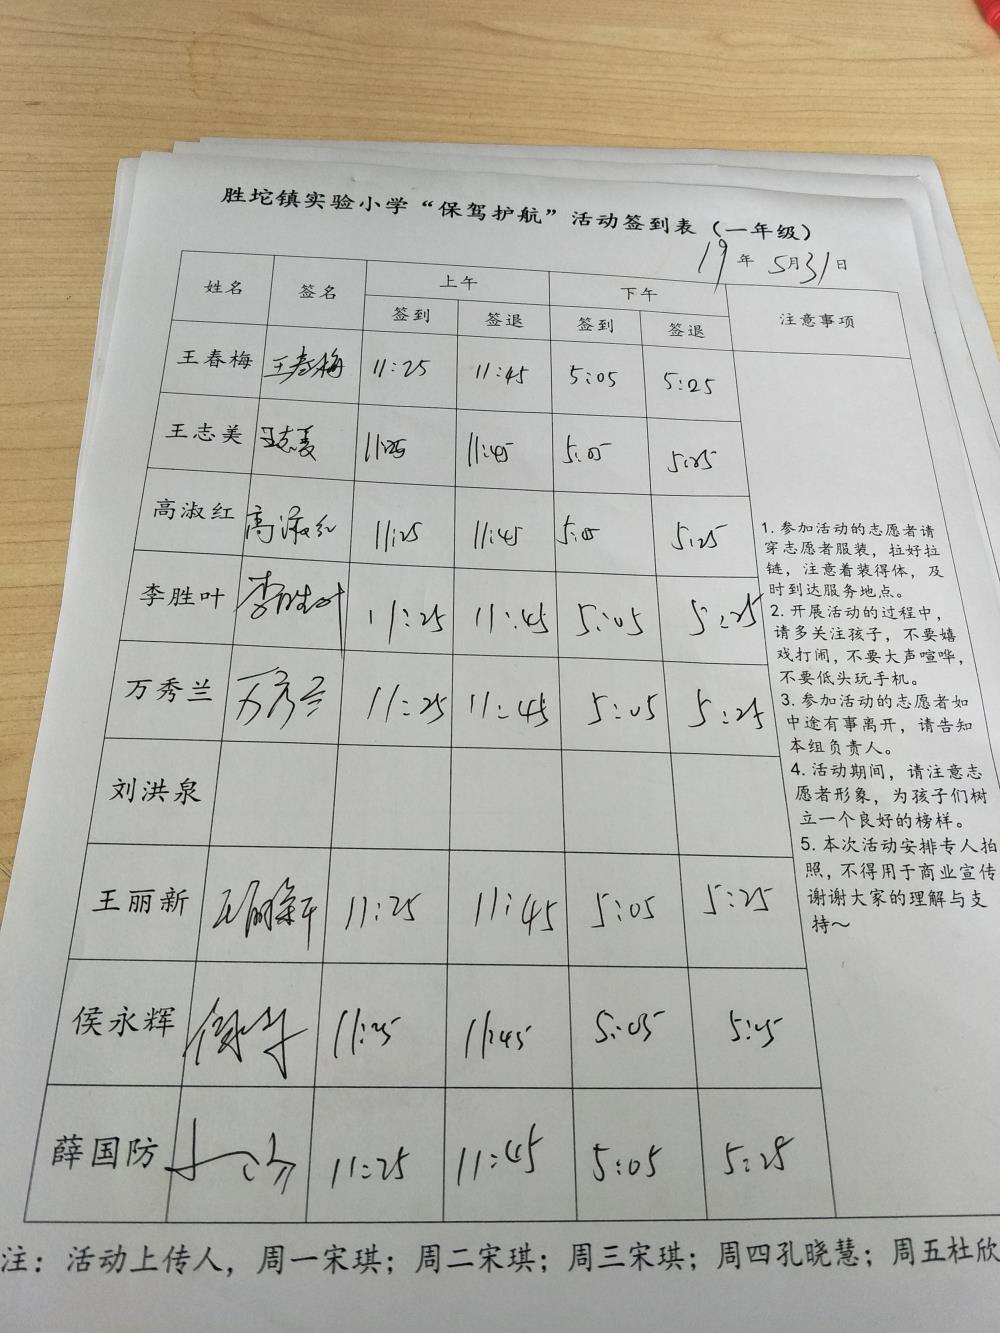 胜坨镇实验小学“保驾护航”活动签到表（一年级）
19年 5月31日
姓名 签名 上午 下午 注意事项
签到 签退 签到 签退
王春梅 王春梅 11:25 11:45 5:05 5:25
王志美 王志美 11:25 11:45 5:05 5:25
高淑红 高淑红 11:25 11:45 5:05 5:25
李胜叶 李胜叶 11:25 11:45 5:05 5:25
万秀兰 万秀兰 11:25 11:45 5:05 5:25
刘洪泉
王丽新 王丽新 11:25 11:45 5:05 5:25
侯永辉 11:25 11:45 5:05 5:25
薛国防 11:25 11:45 5:05 5:25
1. 参加活动的志愿者请
穿志愿者服装，拉好拉
链，注意着装得体，及
时到达服务地点。
2. 开展活动的过程中，
请多关注孩子，不要嬉
戏打闹，不要大声喧哗，
不要低头玩手机。
3. 参加活动的志愿者如
中途有事离开，请告知
本组负责人。
4. 活动期间，请注意志
愿者形象，为孩子们树
立一个良好的榜样。
5. 本次活动安排专人拍
照，不得用于商业宣传
谢谢大家的理解与支
持～
注：活动上传人，周一宋琪；周二宋琪；周三宋琪；周四孔晓慧；周五杜欣